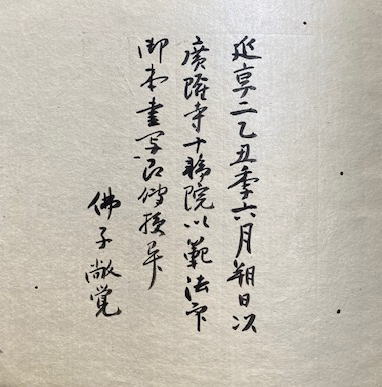 延享二乙丑季六月朔日以
廣隆寺十輪院以範法印
御本書写即傳授畢
佛子敞覚